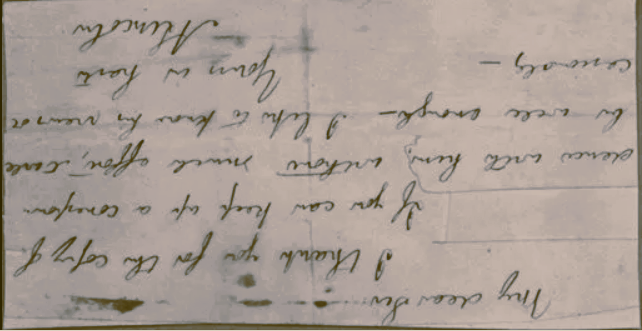 My dear Sir
I thank you for the copy of
If you can keep up a correspon
dence with him, without much effort, it will
be well enough – I like to know his views occasionally –
Yours in haste
A Lincoln